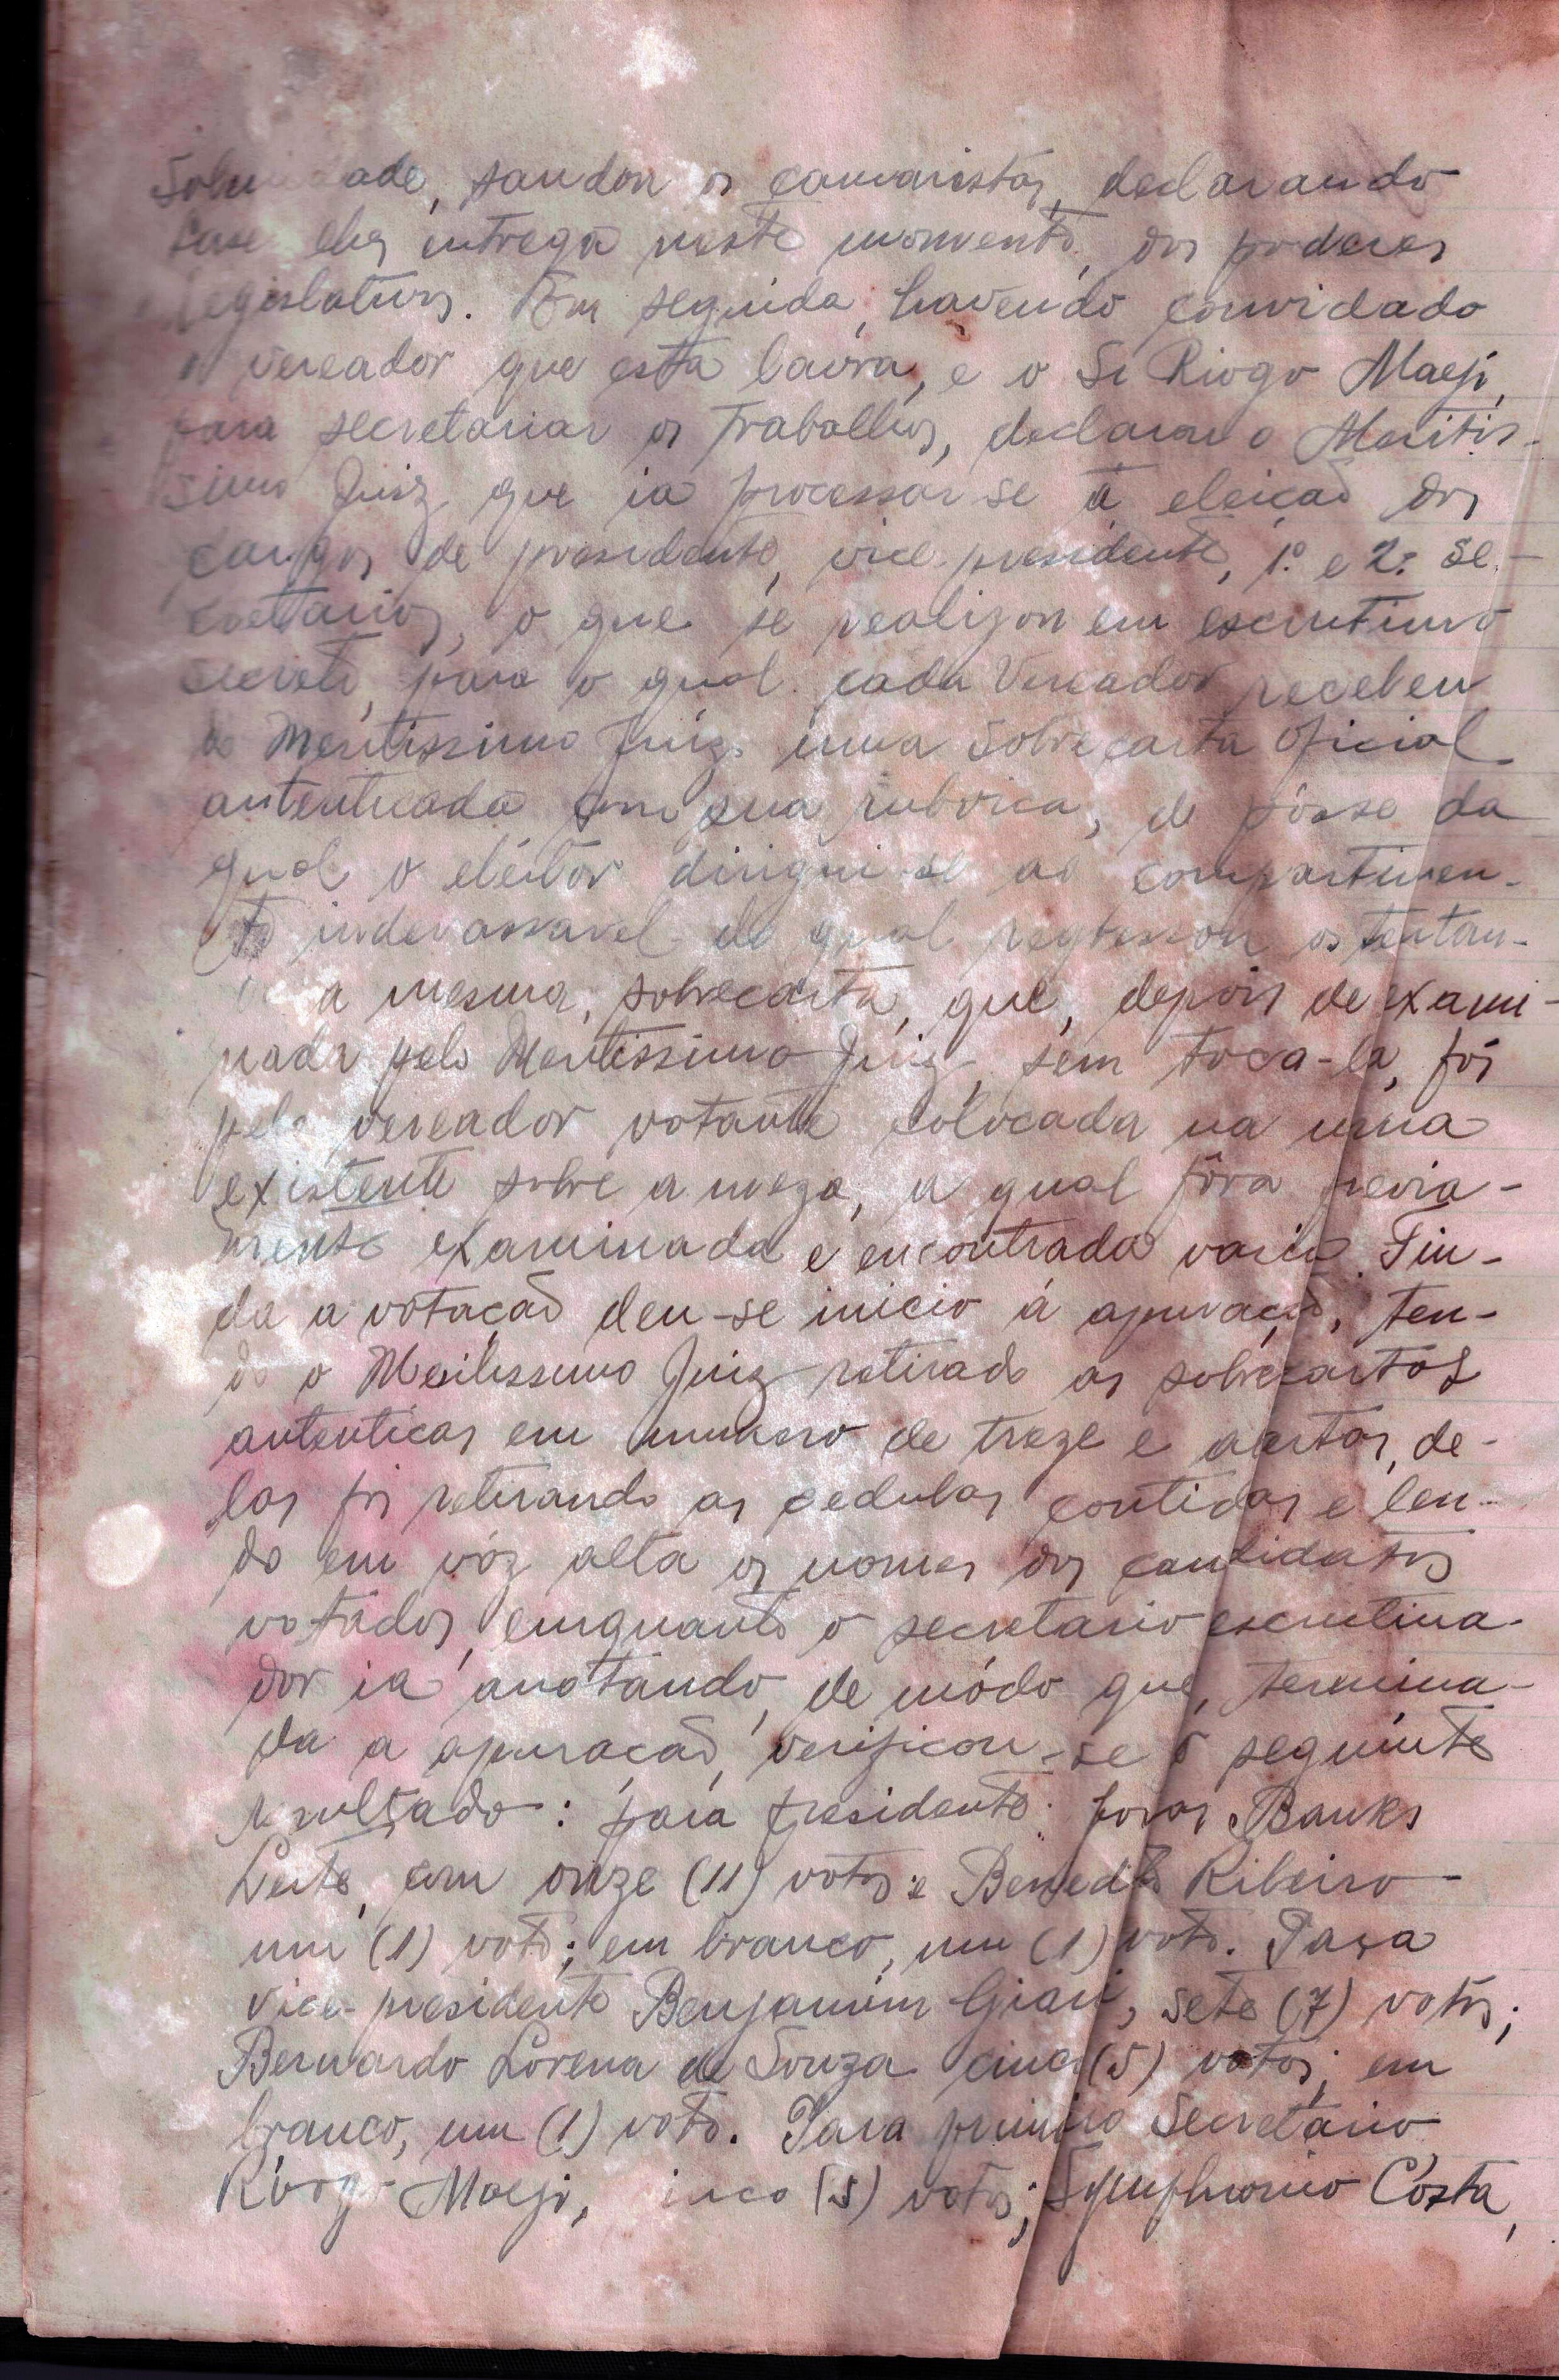 saudou os camaristas, declarando
entrega neste momento, dos poderes
legislativos. Em seguida, havendo convidado
o vereador que esta lavra, e o Sr Riogo Maeji,
para secretariar os trabalhos, declarou o Meritis-
simo Juiz que ia processar-se á eleição dos
cargos de presidente, vice-presidente, 1º e 2º se-
cretarios, o que se realizou em escrutinio
secreto, para o qual cada Vereador recebeu
do Meritissimo Juiz uma sobrecarta oficial
autenticada com sua rubrica, de pósse da
qual o eleitor dirigiu-se ao compartimen-
to indevassavel do qual regressou ostentan-
a mesma sobrecarta, que, depois de exami-
nada pelo Meritissimo Juiz, sem toca-la, foi
pelo vereador votante colocada na urna
existente sobre a meza, a qual fôra previa-
mente examinada e encontrada vasia. Fin-
da a votação deu-se inicio á apuração, ten-
do o Meritissimo Juiz retirado as sobrecartas
autenticas em numero de treze e abertas, de-
las foi retirando as cedulas contidas e len-
do em vóz alta os nomes dos candidatos
votados, emquanto o secretario escrutina-
dor ia anotando, de módo que, termina-
da a apuração, verificou-se o seguinte
resultado: para presidente: Banks
Leite, com onze (11) votos e Benedito Ribeiro
um (1) voto; em branco, um (1) voto. Para
vice-presidente Benjamim Giani, sete (7) votos;
Bernardo Lorena de Souza cinco (5) votos; em
branco, um (1) voto. Para primeiro Secretario
Riogo Maeji, cinco (5) votos; Symphronio Costa,